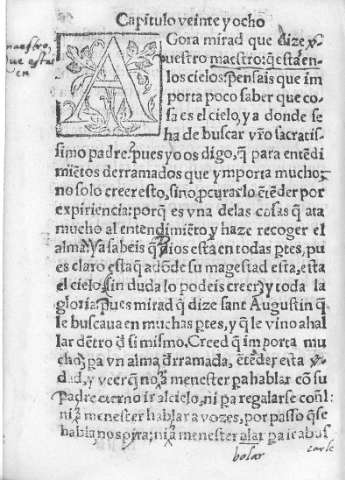 Capitulo veinte y ocho
AGora mirad que dize vr̃o
maestro,
que estas
en
vuestro maestro: q̃ esta en
los cielos. pensais que im
porta poco saber que co
sa es el cielo, y a donde se
ha de buscar vr̃o sacratis
simo padre? pues yo os digo, q̃ para entẽdi
miẽtos derramados que ymporta mucho,
no solo creer esto, sino ꝓcurarlo ẽtẽder por
expiriencia: porq̃ es vna de las cosas q̃ ata
mucho al entendimiẽto, y haze recoger el
alma. Ya sabeis q̃ Dios esta en todas ꝑtes, pu
es claro esta q̃ adõde su magestad esta, esta
el cielo, sin duda lo podeis creer, y toda la
gloria. pues mirad q̃ dize sant Augustin q̃
le buscaua en muchas ꝑtes, y q̃ le vino a ha
llar dẽtro d̃ si mismo. Creed q̃ importa mu
cho, pa vn alma d̃rramada, ẽtẽder esta ṽ
dad, y veer q̃ no a menester pa hablar cõ su
Padre eterno ir al cielo, ni pa regalarse cõ el:
ni a menester hablar a vozes, por passo q̃ se
hable nos oyra: ni a menester alas pa ir a bus
bolar
carle